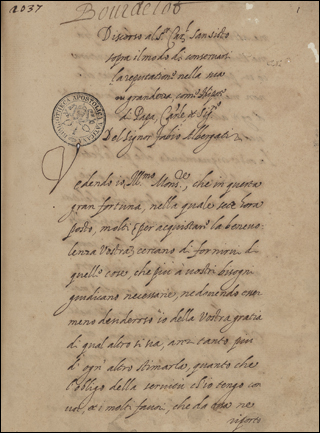 2037
Bourdelot
1
Discorso al S.r Car.l San Sisto
sopra il modo di conservar
la reputatione nella sua
grandezza, come
di Papa, Card.le et Sig.r
Del Signor Fabio Albergati
BIBLIOTHECA APOSTOLICA VATICANA
edendo io, Ill.mo Mons.re, che in questa
gran fortuna, nella quale sete hora
posto, molti per acquistarsi la benevo
lenza Vostra, cercano di fornirvi di
quelle cose, che più a vostri bisogni
giudicano necessarie, ne dovendo io
meno desideroso io della Vostra gratia
di qual altro si sia, anzi tanto più
di ogni altro stimarla, quanto che
l'obligo della servitù ch'io tengo con
voi, et i molti favori, che da essa ne
riporto